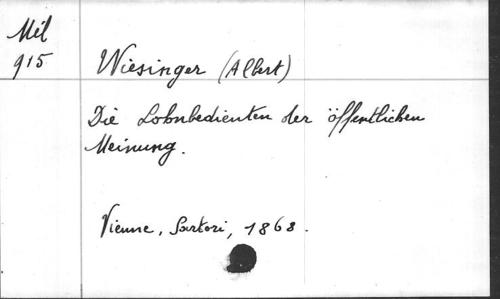 Mil
915
Wiesinger (Albert)
Die Lohnbedienten der öffentlichen
Meinung.
Vienne, Sartori, 1868.